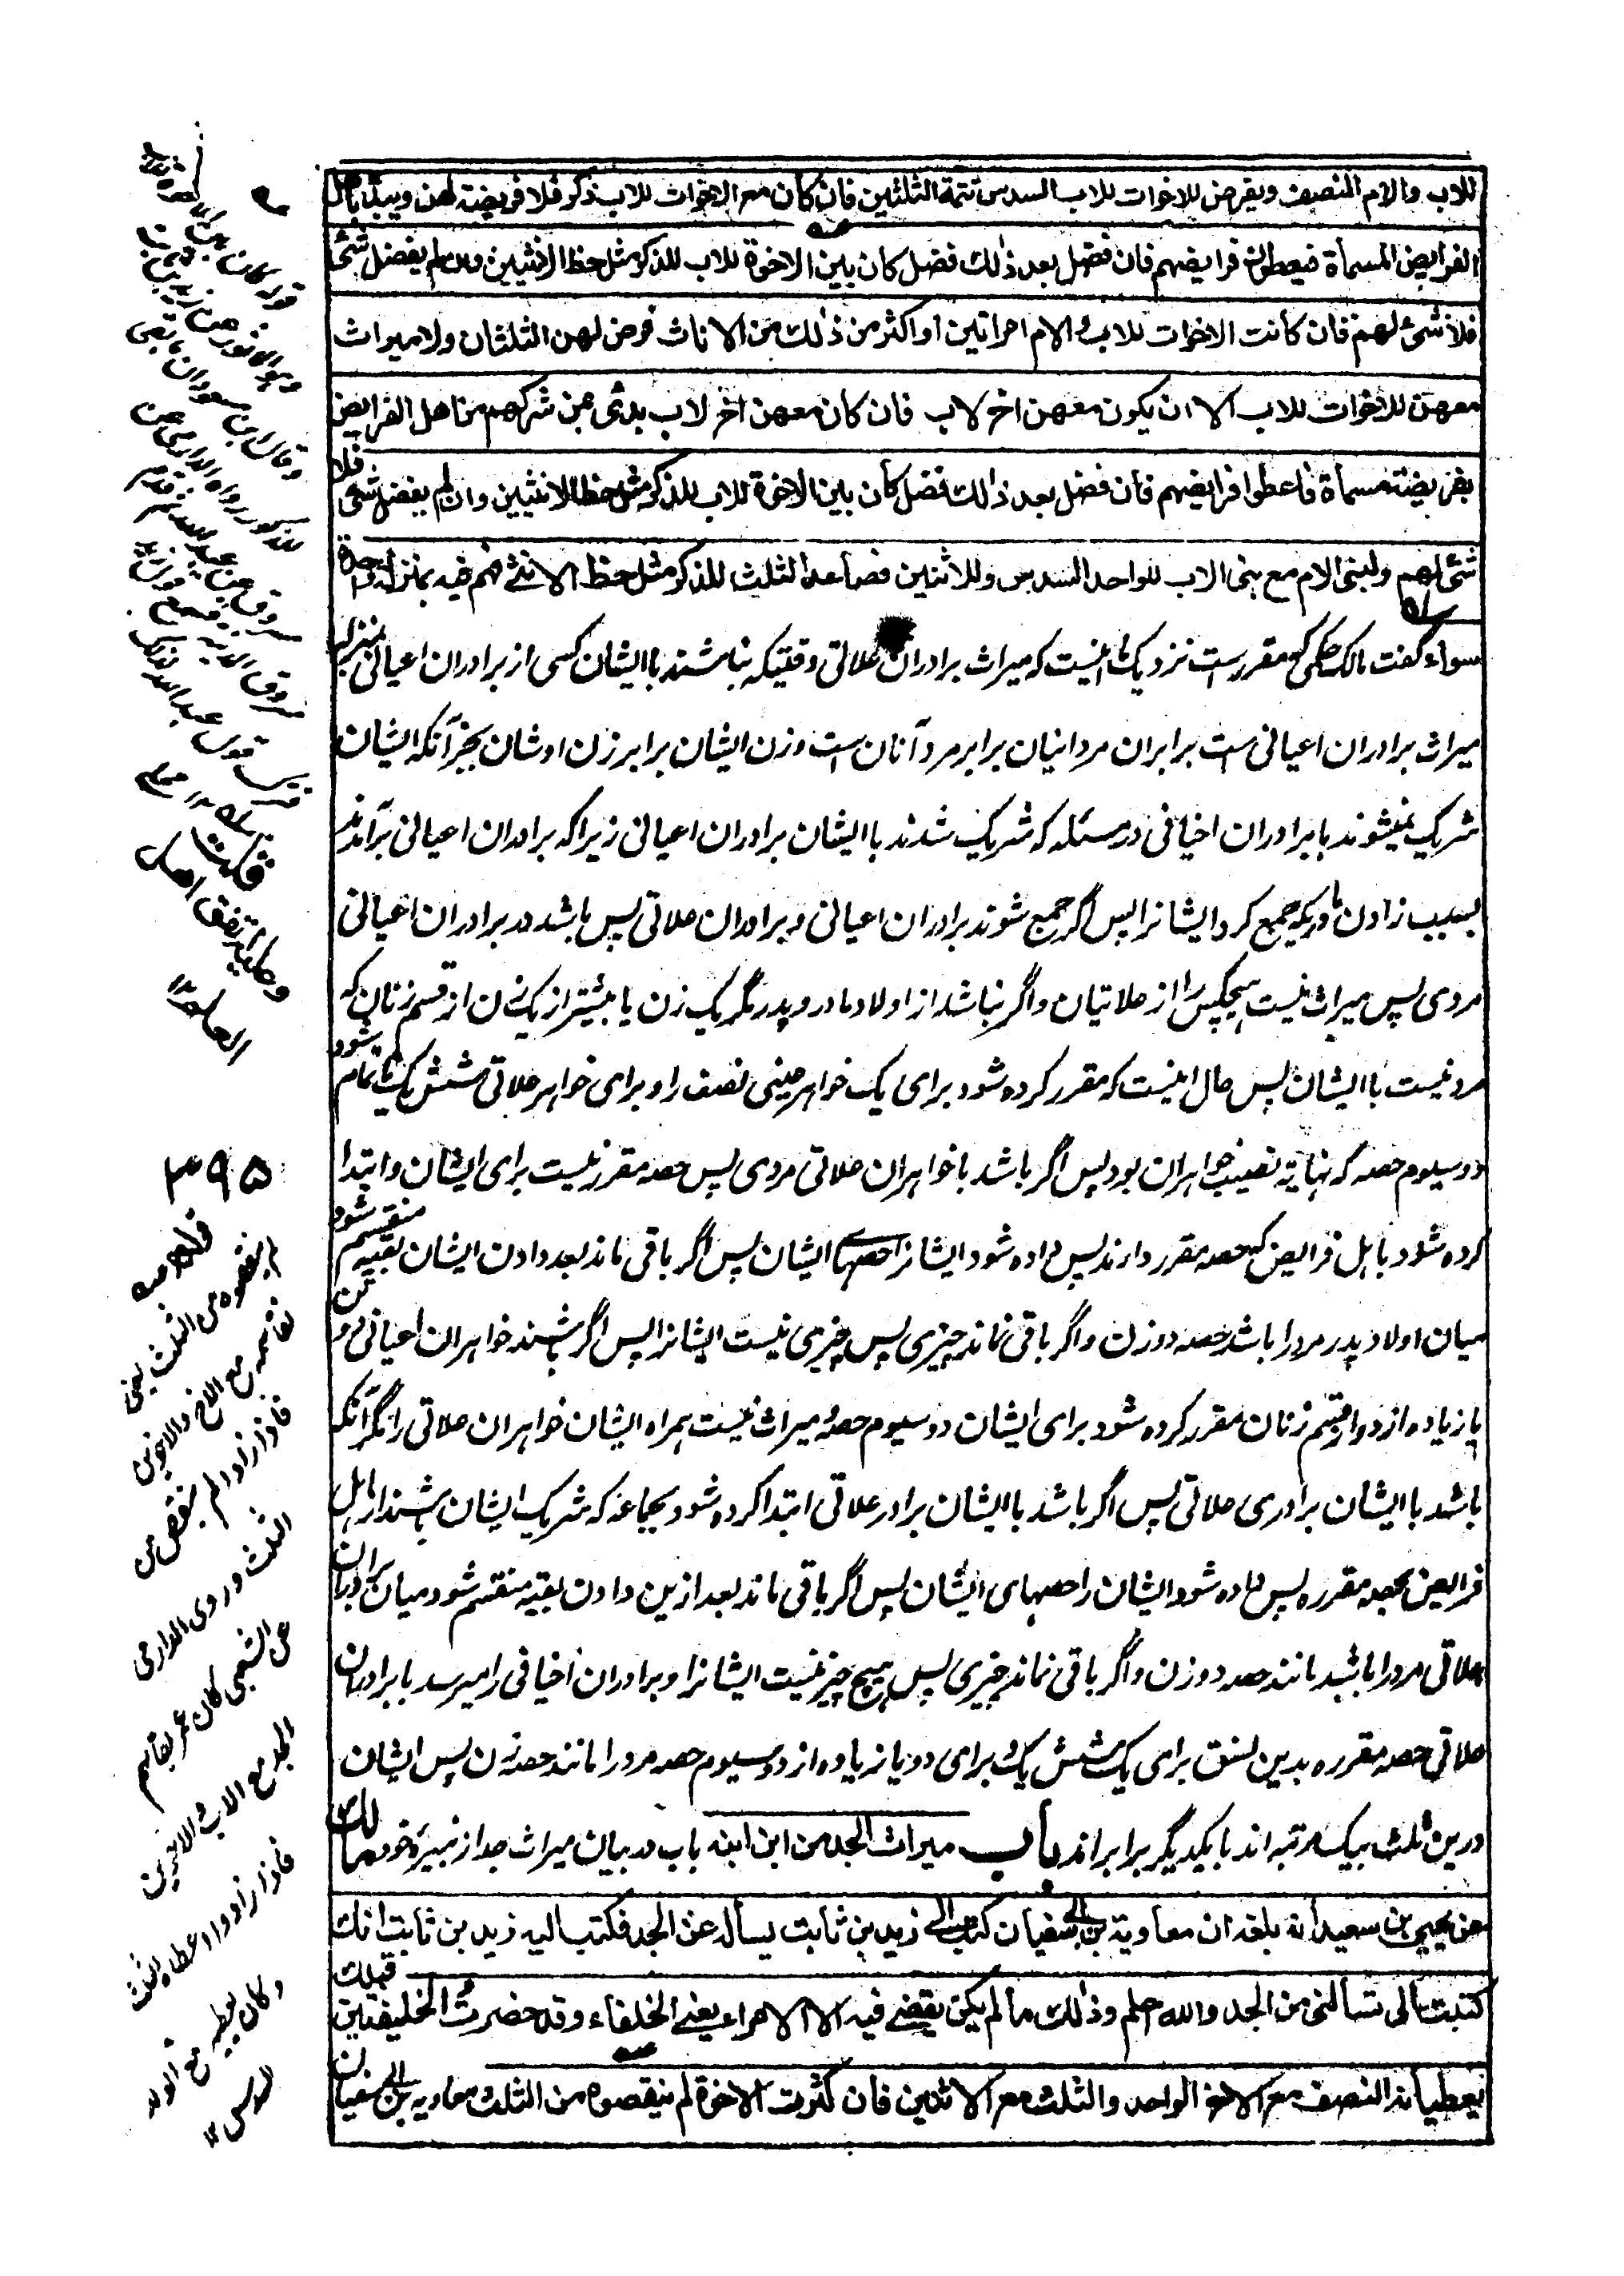 للاب والام النصف ويفرض للاخوات للاب السدس تتمة الثلثين فان كان مع الاخوات للاب ذكر فلا فريضة لهن ويبدأ باهل
الفرايض المسماة فيعطون فرايضهم فان فضل بعد ذلك فضل كان بين الاخوة للاب للذكر مثل حظ الانثيين وان لم يفضل شئ
فلا شئ لهم فان كانت الاخوات للاب والام امراتين او اكثر من ذلك من الاناث فرض لهن الثلثان ولا ميراث
معهن للاخوات للاب الا ان يكون معهن اخ لاب فان كان معهن اخ لاب بدئ بمن شركهم من اهل الفرايض
بفريضة مسماة فاعطوا فرايضهم فان فضل بعد ذلك فضل كان بين الاخوة للاب للذكر مثل حظ الانثيين وان لم يفضل شئ فلا
شئ لهم ولبنى الام مع بنى الاب للواحد السدس وللاثنين فصاعدا الثلث للذكر مثل حظ الانثى هم فيه بمنزلة واحدة
سواء گفت مالك حكمى كه مقررست نزديك ما اينست كه ميراث برادران علاتى وقتيكه نباشند با ايشان كسى از برادران اعيانى بمنزله
ميراث برادران اعيانى است برابر ان مرد اينان برابر مرد آنان است وزن ايشان برابر زن اوشان بجز آنكه ايشان
شريك نميشوند با برادران اخيافى در مسئله كه شريك شدند با ايشان برادران اعيانى زيرا كه برادران اعيانى برآمدند
بسبب زادن مادريكه جمع كرد ايشانرا پس اگر جمع شوند برادران اعيانى وبرادران علاتى پس باشد در برادران اعيانى
مردى پس ميراث نيست هيچكس را از علاتيان واگر نباشد از اولاد مادر وپدر مگر يك زن يا بيشتر از يك زن از قسم زنان كه
مرد نيست با ايشان پس حال اينست كه مقرر كرده شود براى يك خواهر عينى نصف را وبراى خواهر علاتى شش يك تا تمام شود
دو سيوم حصه كه نهاية نصيب خواهران بود پس اگر باشد با خواهران علاتى مردى پس حصه مقرر نيست براى ايشان وابتدا
كرده شود باهل فرايض كه حصه مقرر دارند پس داده شود ايشانرا حصهاى ايشان پس اگر باقى ماند بعد دادن ايشان بقيه منقسم شود
ميان اولاد پدر مرد را باشد حصه دو زن واگر باقى نماند چيزى پس چيزى نيست ايشانرا پس اگر باشند خواهران اعيانى دو تن
يا زياده از دو از قسم زنان مقرر كرده شود براى ايشان دو سيوم حصه وميراث نيست همراه ايشان خواهران علاتى را مگر آنكه
باشد با ايشان برادرى علاتى پس اگر باشد با ايشان برادر علاتى ابتدا كرده شود بجماعه كه شريك ايشان باشند از اهل
فرايض بحصه مقرره پس داده شود ايشان را حصهاى ايشان پس اگر باقى ماند بعد ازين دادن بقيه منقسم شود ميان برادران
علاتى مرد را باشد مانند حصه دو زن واگر باقى نماند چيزى پس هيچ چيز نيست ايشانرا وبرادران اخيافى را ميرسد با برادران
علاتى حصه مقرره بدين نسق براى يك شش يك وبراى دو يا زياده از دو سيوم حصه مرد را مانند حصه زن پس ايشان
درين ثلث بيك مرتبه اند با يكديگر برابر اند باب ميراث الجد من ابن ابنه باب در بيان ميراث جد از نبيره خود مالك
عن يحيى بن سعيد انه بلغه ان معاوية بن ابى سفيان كتب الى زيد بن ثابت يسأله عن الجد فكتب اليه زيد بن ثابت انك
كتبت الى تسألنى عن الجد والله اعلم وذلك مالم يكن يقضى فيه الا الامراء يعنى الخلفاء وقد حضرت الخليفتين قبلك
يعطيانه النصف مع الاخ الواحد والثلث مع الاثنين فان كثرت الاخوة لم ينقصوه من الثلث معاويه بن ابى سفيان
قلت
وعليه اتفق اهل
العلم
٣٩٥
لم ينقصوه من الثلث يعنى
نقاسمه مع الاخ والاخوين
فاذا زاد لم ينقص من
الثلث وروى الدارمى
عن الشعبى كان عمر يقاسم
الجد مع الاخ والاخوين
فاذا زادوا اعطاه الثلث
وكان يعطيه مع الولد
السدس ١٢